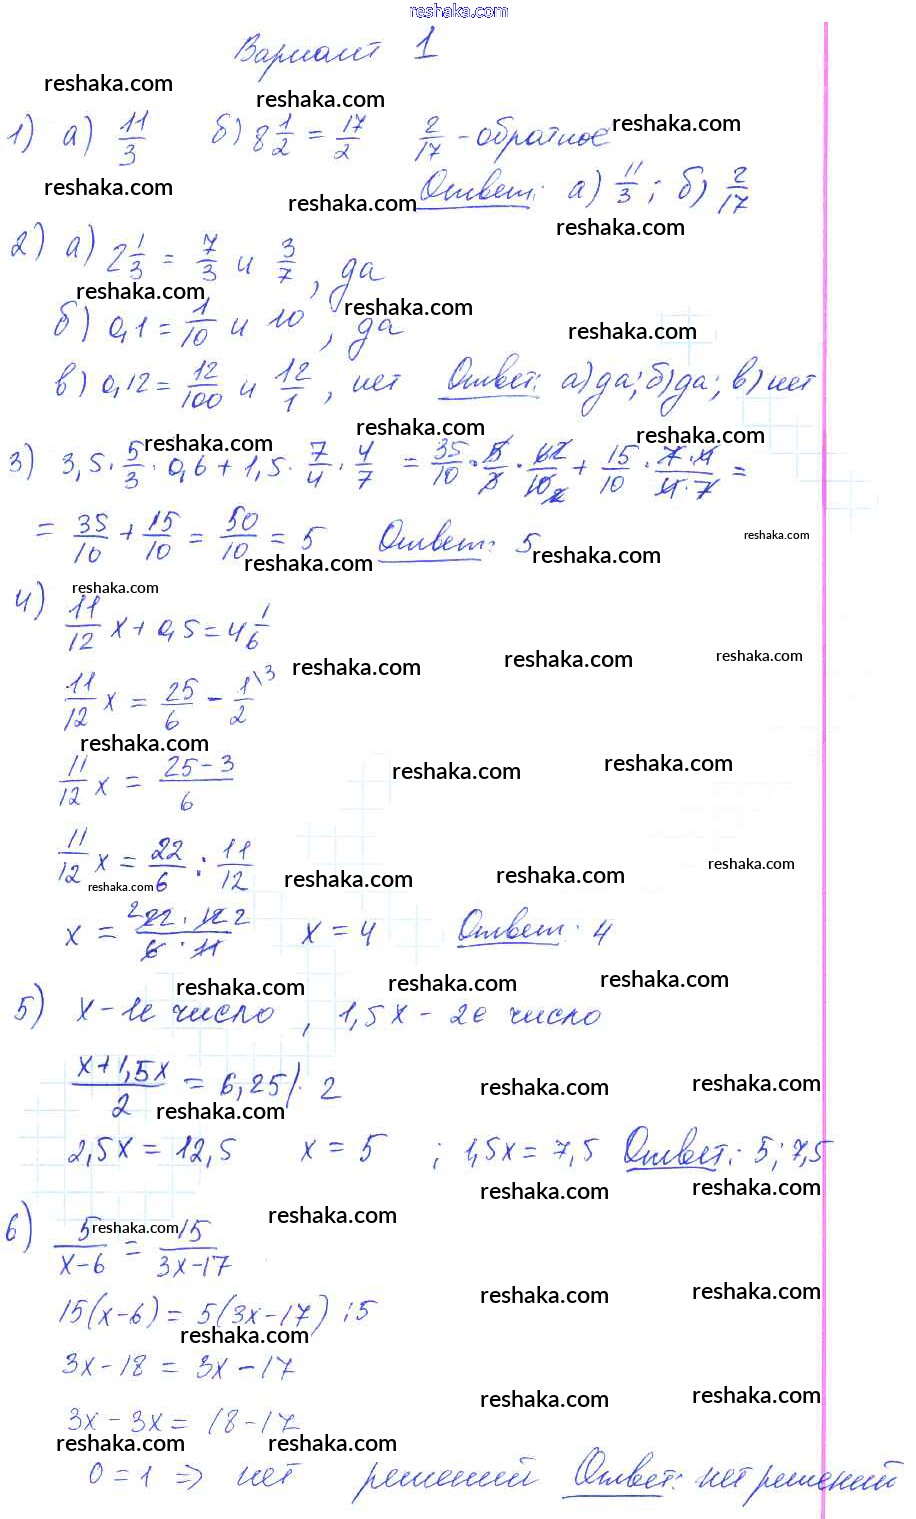 reshaka.com
Вариант 1
reshaka.com reshaka.com
1) а) 11/3 б) 8 1/2 = 17/2 2/17 - обратное reshaka.com
reshaka.com reshaka.com Ответ: а) 11/3; б) 2/17
reshaka.com
2) а) 2 1/3 = 7/3 и 3/7, да
reshaka.com reshaka.com reshaka.com
б) 0,1 = 1/10 и 10, да
в) 0,12 = 12/100 и 12/1, нет Ответ: а) да; б) да; в) нет
reshaka.com reshaka.com reshaka.com
3) 3,5 · 5/3 · 0,6 + 1,5 · 7/4 · 4/7 = 35/10 · 5/3 · 62/102 + 15/10 · 7·4/4·7 =
= 35/10 + 15/10 = 50/10 = 5 Ответ: 5
reshaka.com reshaka.com reshaka.com
reshaka.com
4) 11/12 x + 0,5 = 4 1/6
reshaka.com reshaka.com reshaka.com
11/12 x = 25/6 - 1/2 \3
reshaka.com
11/12 x = 25-3/6
reshaka.com reshaka.com
11/12 x = 22/6 : 11/12
reshaka.com reshaka.com reshaka.com reshaka.com
x = 2 22 · 12 2/6 · 11 x = 4 Ответ: 4
reshaka.com reshaka.com reshaka.com
5) x - 1е число, 1,5x - 2е число
x+1,5x/2 = 6,25 |· 2
reshaka.com reshaka.com reshaka.com
2,5x = 12,5 x = 5 ; 1,5x = 7,5 Ответ: 5; 7,5
reshaka.com reshaka.com
reshaka.com reshaka.com
6) 5/x-6 = 15/3x-17
reshaka.com reshaka.com
15(x-6) = 5(3x-17) :5
reshaka.com
3x-18 = 3x-17
reshaka.com reshaka.com
3x-3x = 18-17
reshaka.com reshaka.com
0=1 => нет решений Ответ: нет решений